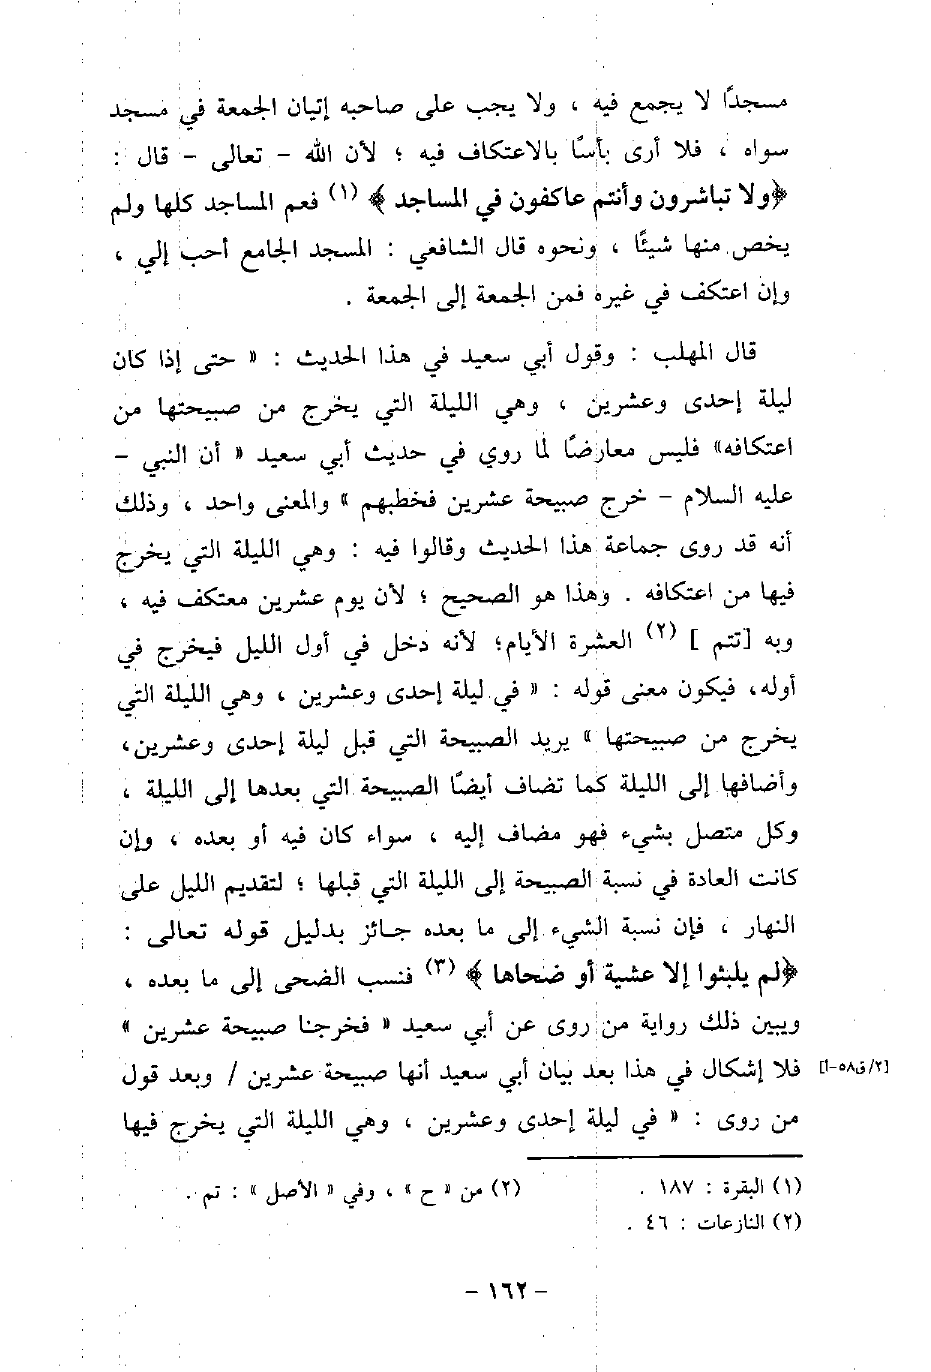 مسجدًا لا يجمع فيه ، ولا يجب على صاحبه إتيان الجمعة في مسجد
سواه ، فلا أرى بأسًا بالاعتكاف فيه ؛ لأن الله - تعالى - قال :
﴿ولا تباشرون وأنتم عاكفون في المساجد ﴾ (١) فعم المساجد كلها ولم
يخص منها شيئًا ، ونحوه قال الشافعي : المسجد الجامع أحب إلي ،
وإن اعتكف في غيره فمن الجمعة إلى الجمعة .
قال المهلب : وقول أبي سعيد في هذا الحديث : « حتى إذا كان
ليلة إحدى وعشرين ، وهي الليلة التي يخرج من صبيحتها من
اعتكافه» فليس معارضًا لما روي في حديث أبي سعيد « أن النبي -
عليه السلام - خرج صبيحة عشرين فخطبهم » والمعنى واحد ، وذلك
أنه قد روى جماعة هذا الحديث وقالوا فيه : وهي الليلة التي يخرج
فيها من اعتكافه . وهذا هو الصحيح ؛ لأن يوم عشرين معتكف فيه ،
وبه [تتم ] (٢) العشرة الأيام؛ لأنه دخل في أول الليل فيخرج في
أوله، فيكون معنى قوله : « في ليلة إحدى وعشرين ، وهي الليلة التي
يخرج من صبيحتها » يريد الصبيحة التي قبل ليلة إحدى وعشرين،
وأضافها إلى الليلة كما تضاف أيضًا الصبيحة التي بعدها إلى الليلة ،
وكل متصل بشيء فهو مضاف إليه ، سواء كان فيه أو بعده ، وإن
كانت العادة في نسبة الصبيحة إلى الليلة التي قبلها ؛ لتقديم الليل على
النهار ، فإن نسبة الشيء إلى ما بعده جائز بدليل قوله تعالى :
﴿لم يلبثوا إلا عشية أو ضحاها ﴾ (٣) فنسب الضحى إلى ما بعده ،
ويبين ذلك رواية من روى عن أبي سعيد « فخرجنا صبيحة عشرين »
فلا إشكال في هذا بعد بيان أبي سعيد أنها صبيحة عشرين / وبعد قول [٢/ق٥٨-أ]
من روى : « في ليلة إحدى وعشرين ، وهي الليلة التي يخرج فيها
(١) البقرة : ١٨٧ . (٢) من « ح » ، وفي « الأصل » : تم .
(٢) النازعات : ٤٦ .
- ١٦٢ -